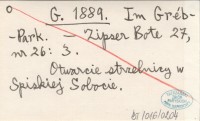 G. 1889. Im Gréb-
-Park. – Zipser Bote 27,
nr 26: 3.
Otwarcie strzelnicy w
Spiskiej Sobocie.